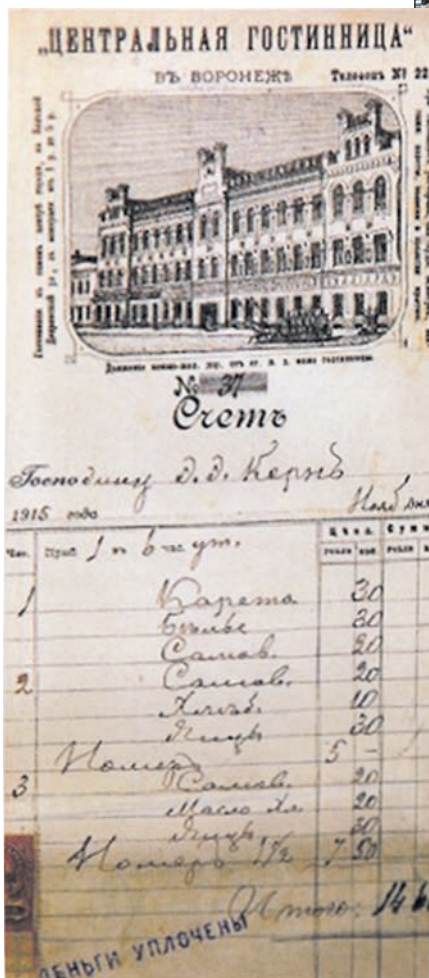 „ЦЕНТРАЛЬНАЯ ГОСТИННИЦА“
ВЪ ВОРОНЕЖѢ Телефонъ № 22
№ 37
Счетъ
Господину Д. Д. Кернъ
1915 года Нояб
Чис. Приб 1 въ 6 час ут. Цѣна. Сумм
рубли коп. рубли
1 Карета 30
Бѣлье 30
Самов. 20
2 Самов. 20
Хлѣб. 10
Яицъ 30
Номеръ 5 –
3 Самов. 20
Масло Хл. 20
Яицъ 30
Номеръ 1½ 7 50
Итого: 14 6
ДЕНЬГИ УПЛОЧЕНЫ